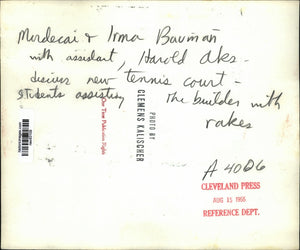 Mordecai & Irma Bauman
with assistant, Harold Aks -
new tennis court -
students assisting The builder with
rakes
One Time Publication Rights
PHOTO BY
CLEMENS KALISCHER
A 40D6
CLEVELAND PRESS
AUG 15 1955
REFERENCE DEPT.